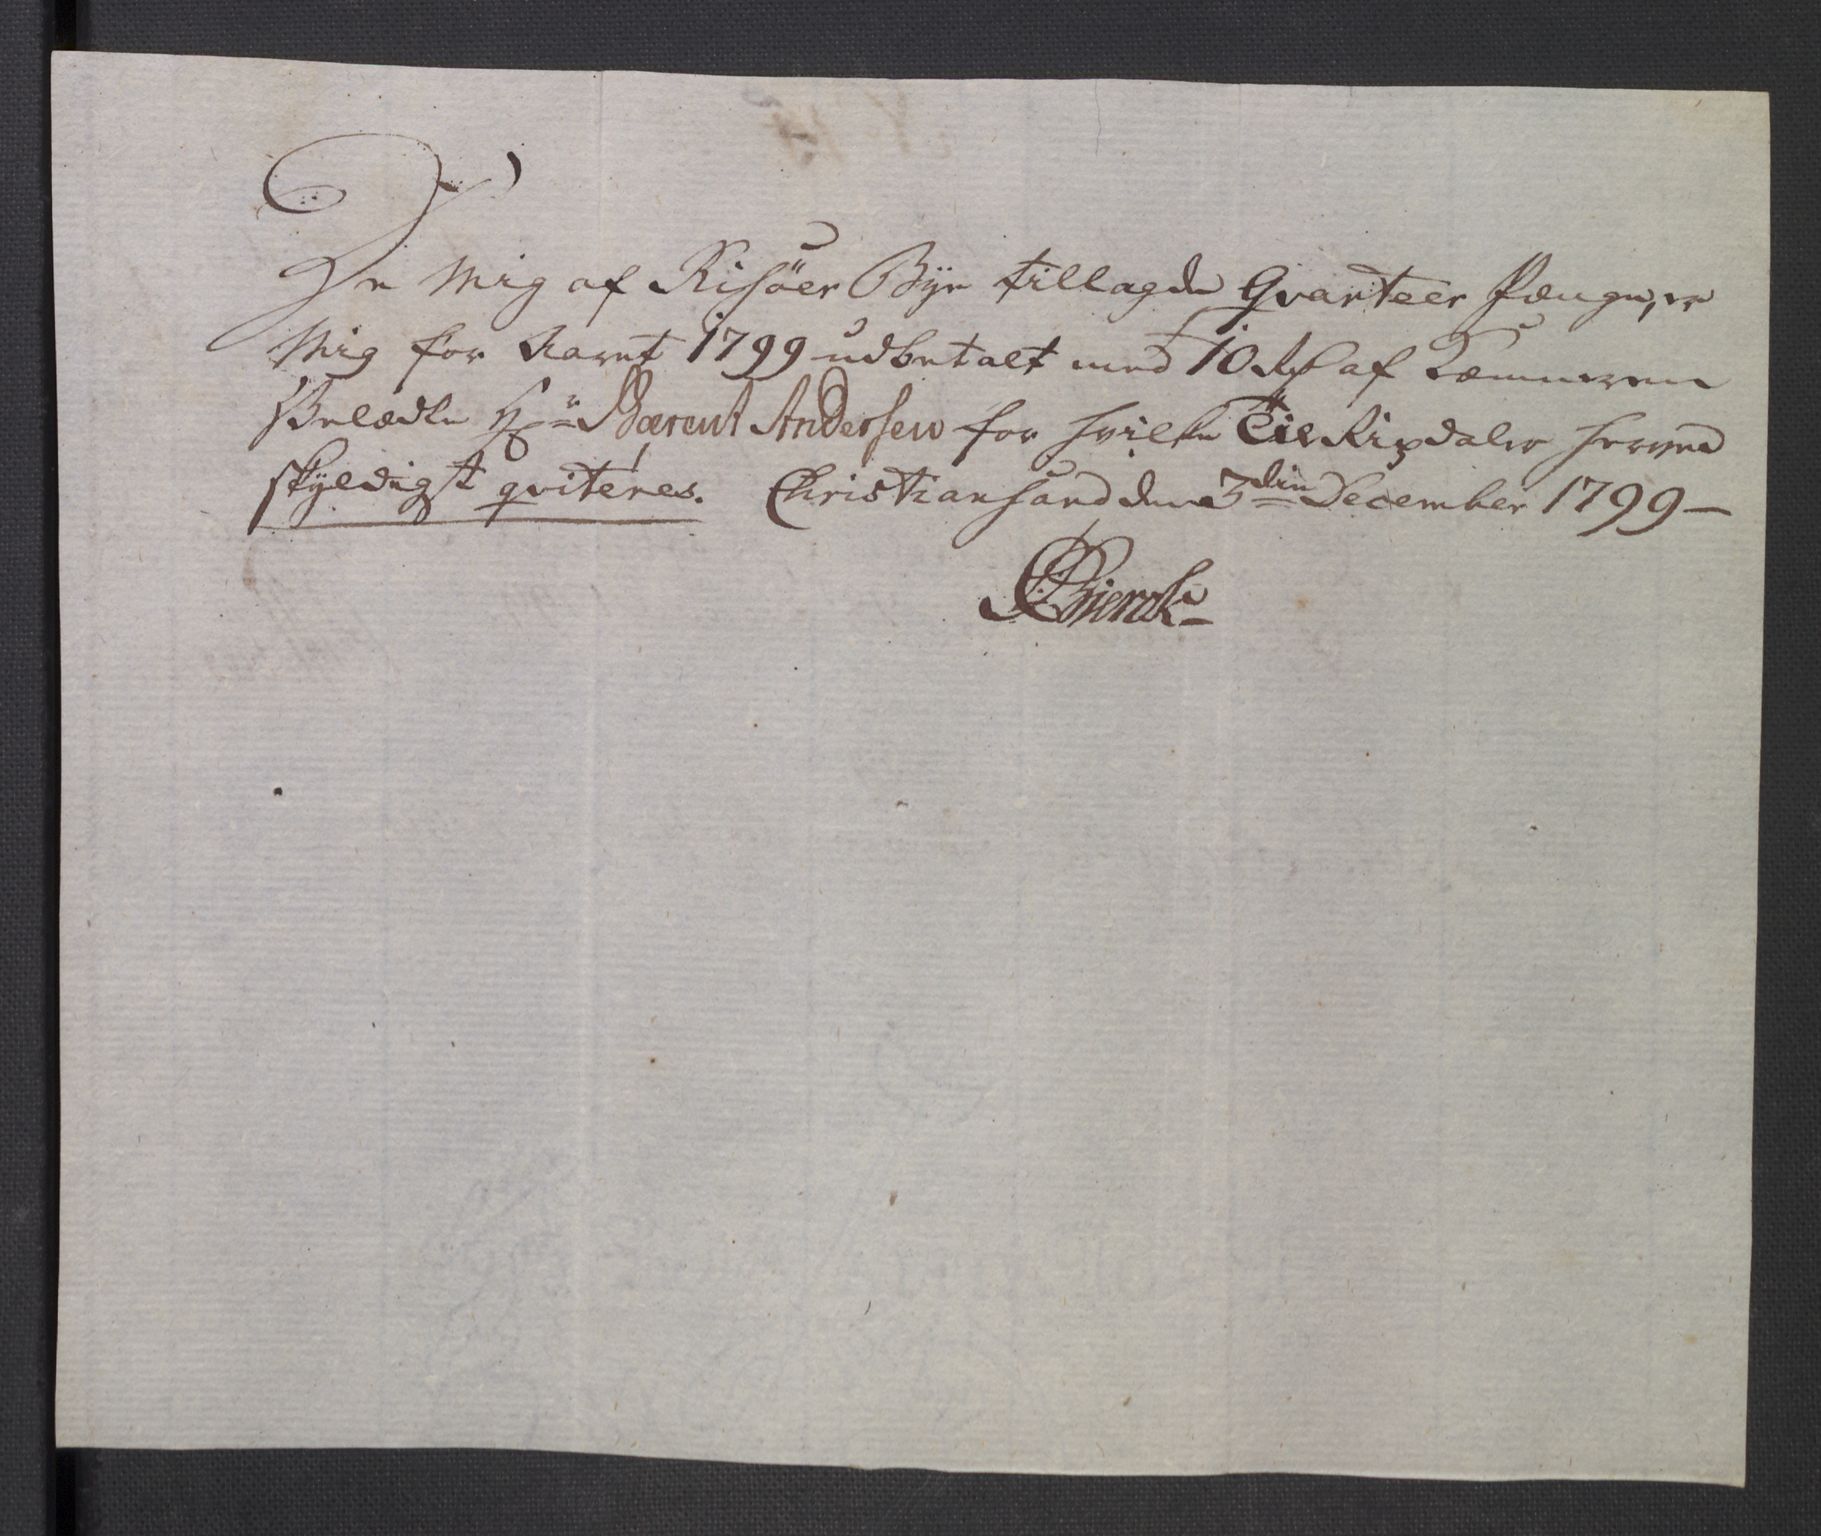 De Mig af Risöer Bye tillagde Qvarteer Penge, er
Mig for Aaret 1799 udbetalt med 10 Rd af Kæmneren
Velædle Hr Bærent Andersen for hvilke Tie Rixdaler herved
skyldigst qviteres. Christiansand den 3die December 1799 –
Bierck